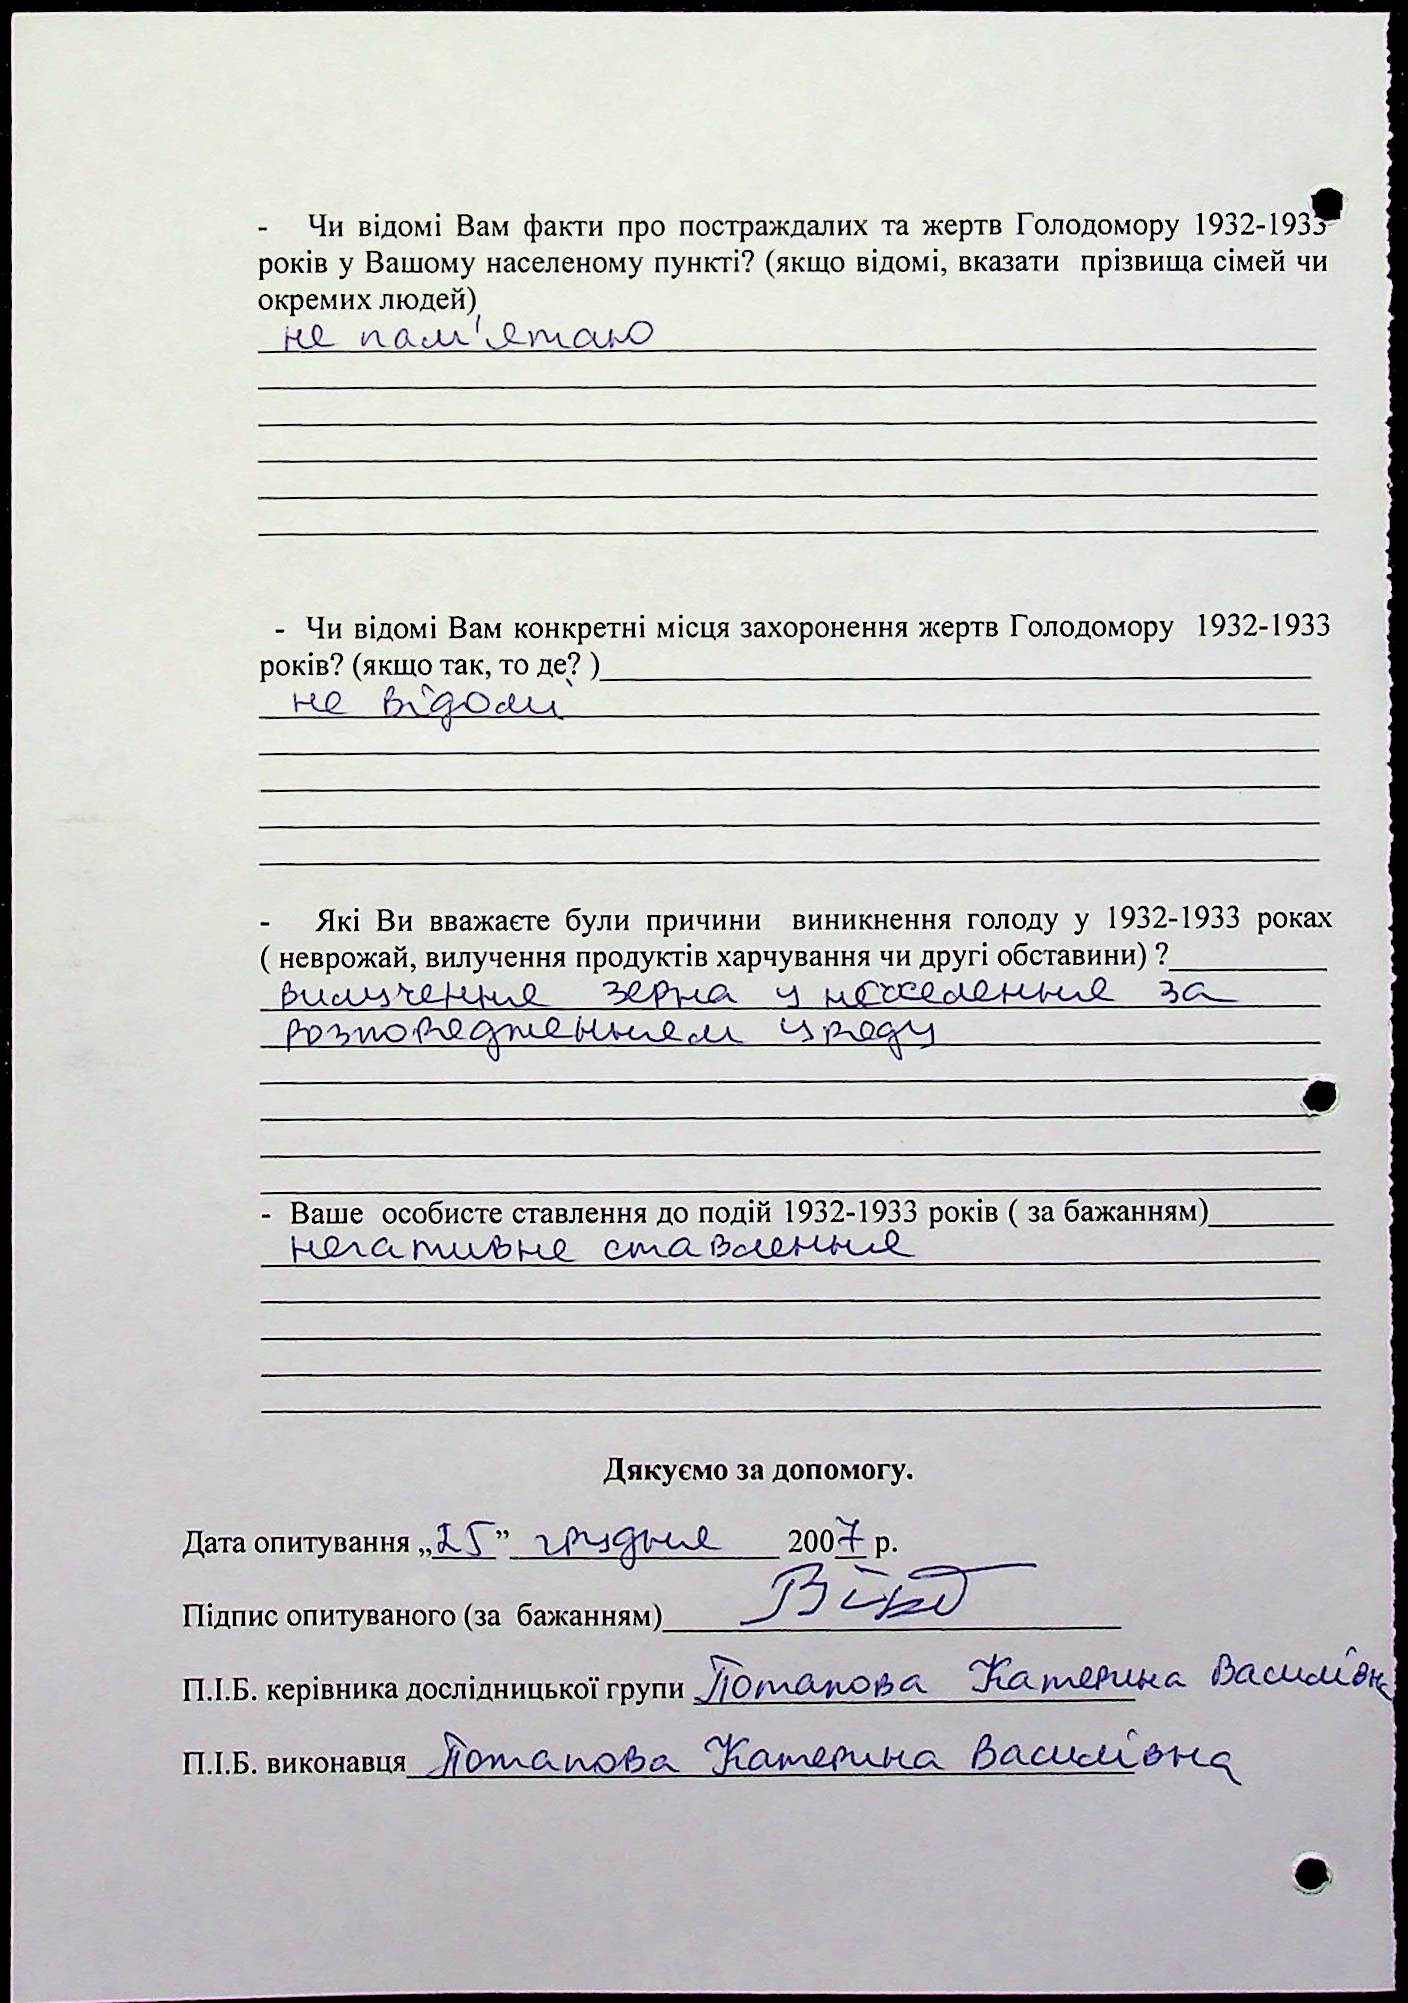 - Чи відомі Вам факти про постраждалих та жертв Голодомору 1932-1933
років у Вашому населеному пункті? (якщо відомі, вказати прізвища сімей чи
окремих людей)
не пам'ятаю
- Чи відомі Вам конкретні місця захоронення жертв Голодомору 1932-1933
років? (якщо так, то де? )
не відомі
- Які Ви вважаєте були причини виникнення голоду у 1932-1933 роках
( неврожай, вилучення продуктів харчування чи другі обставини) ?
вилучення зерна у населення за
розпорядженням уряду
- Ваше особисте ставлення до подій 1932-1933 років ( за бажанням)
негативне ставлення
Дякуємо за допомогу.
Дата опитування „25” грудня 2007 р.
Підпис опитуваного (за бажанням)
П.І.Б. керівника дослідницької групи Потапова Катерина Василівна
П.І.Б. виконавця Потапова Катерина Василівна